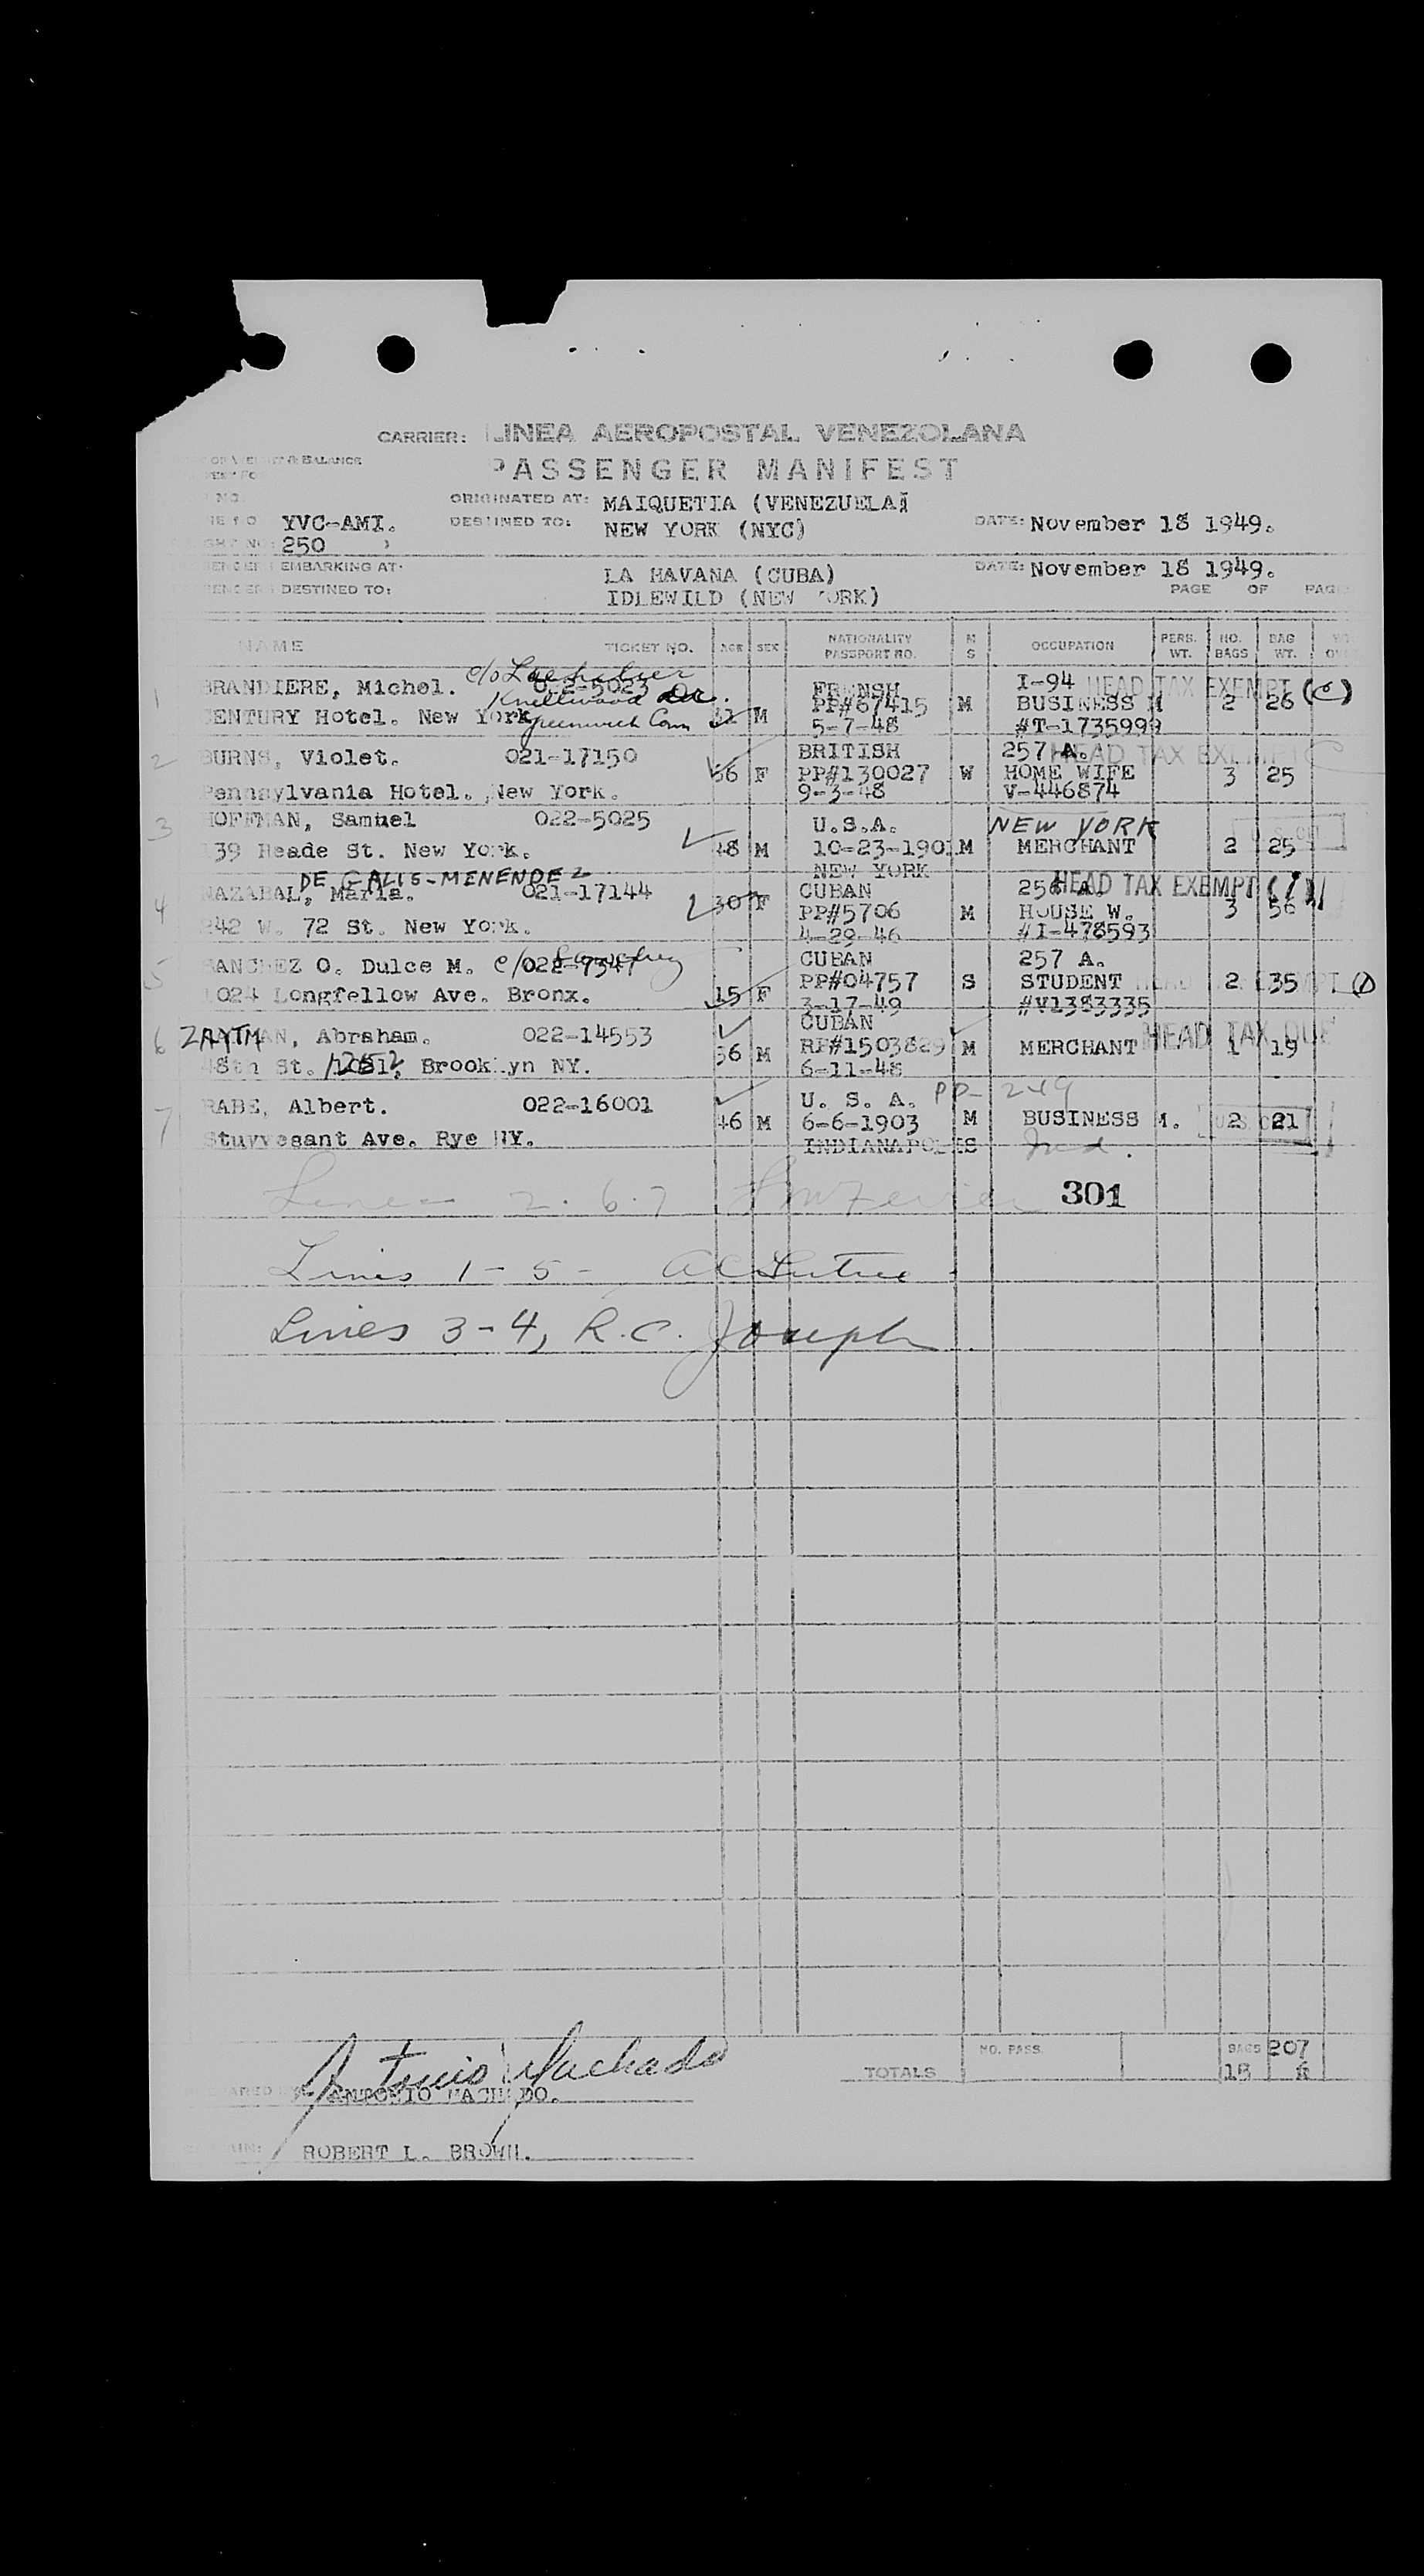 CARRIER: LINEA AEROPOSTAL VENEZOLANA
& BALANCE
PASSENGER MANIFEST
ORIGINATED AT: MAIQUETIA (VENEZUELA)
YVC-AMI. DESTINED TO: NEW YORK (NYC) DATE: November 18 1949.
250
EMBARKING AT: LA HAVANA (CUBA) DATE: November 18 1949.
DESTINED TO: IDLEWILD (NEW YORK) PAGE OF PAGE
NAME TICKET NO. AGE SEX NATIONALITY PASSPORT NO. M S OCCUPATION PERS. WT. NO. BAGS BAG WT.
1 BRANDIERE, Michel. c/o 022-5023 FRENSH I-94 HEAD TAX EXEMPT (C)
Knollwood Dr. PP#67415 M BUSINESS M 2 26
CENTURY Hotel. New York. Greenwich Conn M 5-7-48 #T-1735999
2 BURNS, Violet. 021-17150 BRITISH 257 A. HEAD TAX EXEMPT C
56 F PP#130027 W HOME WIFE 3 25
Pennsylvania Hotel. New York. 9-3-48 V-446874
3 HOFFMAN, Samuel 022-5025 U.S.A. NEW YORK
139 Reade St. New York. 48 M 10-23-1901 M MERCHANT 2 25
NEW YORK
DE GALIS-MENENDEZ
4 NAZABAL, Maria. 021-17144 30 F CUBAN 256 A. HEAD TAX EXEMPT (1)
PP#5706 M HOUSE W. 3 56
242 W. 72 St. New York. 4-29-46 #I-478593
5 SANCHEZ O. Dulce M. c/o 022-7547 CUBAN 257 A.
1024 Longfellow Ave. Bronx. 15 F PP#04757 S STUDENT 2 35
3-17-49 #V1383335
6 ZAYTMAN, Abraham. 022-14553 CUBAN HEAD TAX DUE
36 M RP#1503829 M MERCHANT 1 19
48th St. 1252, Brooklyn NY. 6-11-48
7 RABE, Albert. 022-16001 U. S. A. PP- 249
46 M 6-6-1903 M BUSINESS M. 2 21
Stuyvesant Ave. Rye NY. INDIANAPOLIS Ind.
Lines 2. 6. 7 301
Lines 1 - 5 -
Lines 3-4, R.C. Joseph
TOTALS NO. PASS. BAGS 207
Antonio Machado 15 K
ANTONIO MACHADO.
ROBERT L. BROWN.